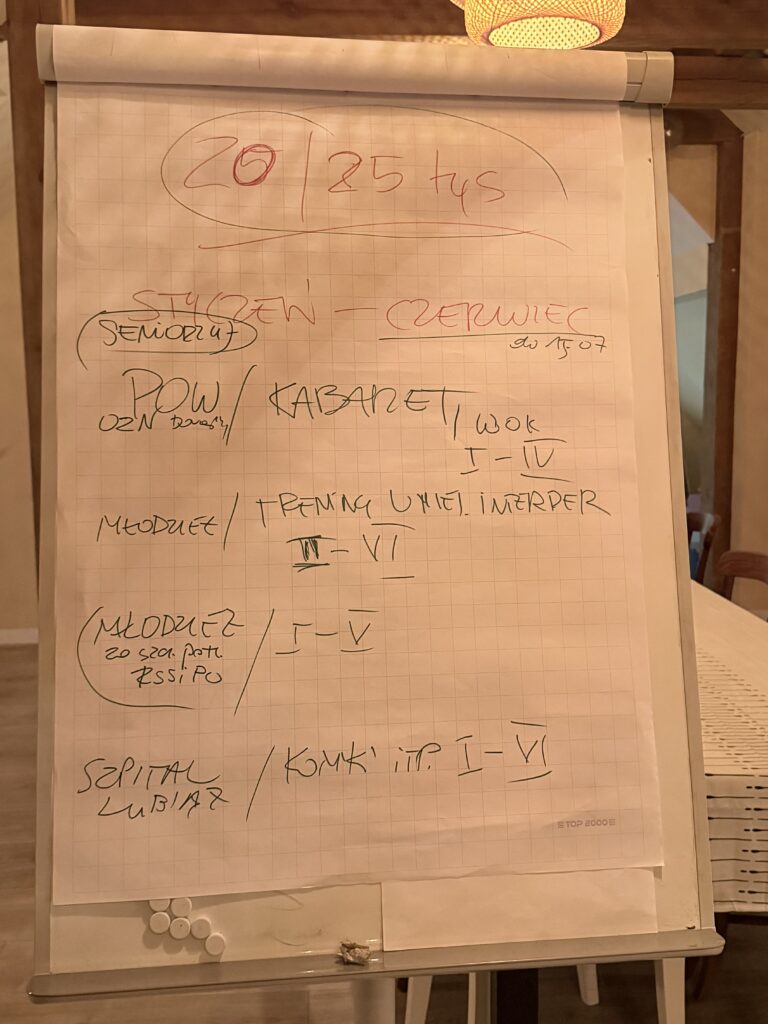 20 / 25 tys
STYCZEŃ — CZERWIEC
SENIORZY do 15 07
POW / KABARET / WOK
OZN I - IV
MŁODZIEŻ / TRENING UMIEJ. INTERPER
II - VI
MŁODZIEŻ / I - V
ze szcz. potr.
SZPITAL / KOMIKS ITP. I - VI
LUBIĄŻ
TOP 2000